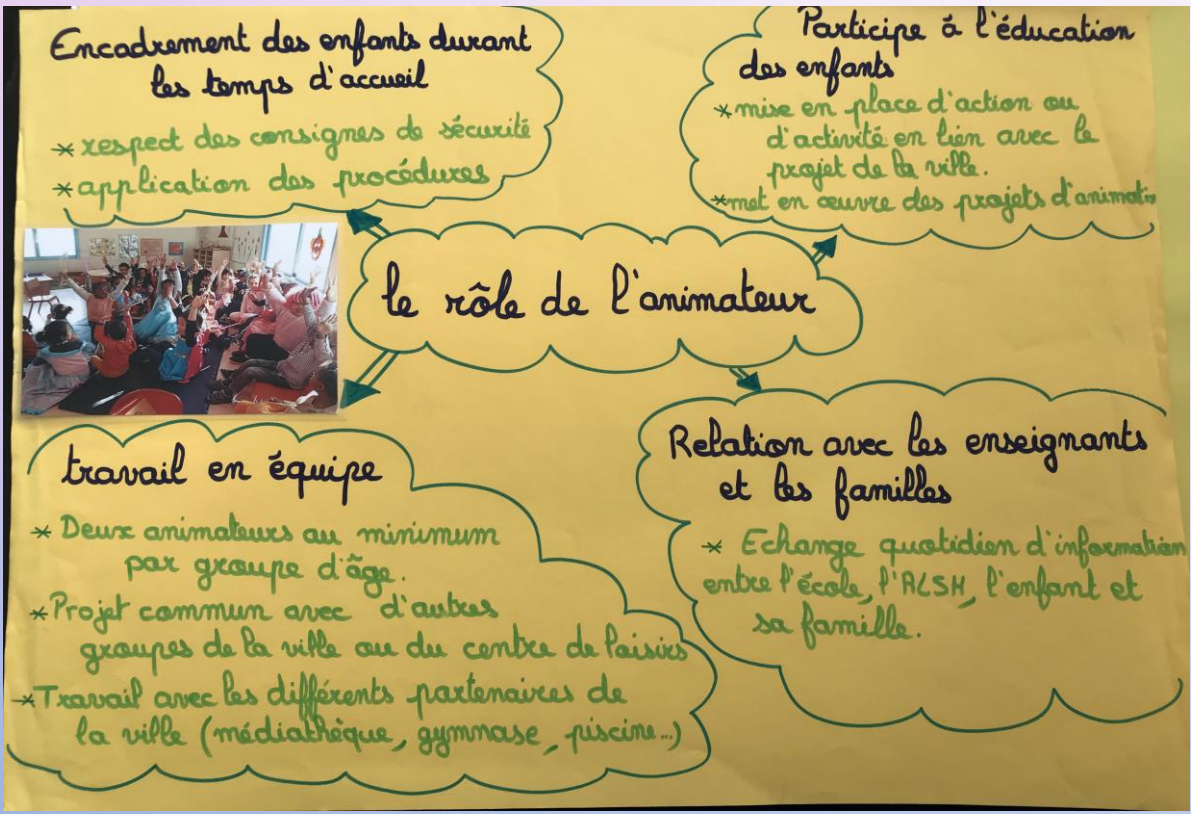 Encadrement des enfants durant
les temps d'accueil
* respect des consignes de sécurité
* application des procédures
Participe à l'éducation
des enfants
* mise en place d'action ou
d'activité en lien avec le
projet de la ville.
* met en œuvre des projets d'animatio
le rôle de l'animateur
travail en équipe
* Deux animateurs au minimum
par groupe d'âge.
* Projet commun avec d'autres
groupes de la ville ou du centre de loisirs
* Travail avec les différents partenaires de
la ville (médiathèque, gymnase, piscine...)
Relation avec les enseignants
et les familles
* Echange quotidien d'information
entre l'école, l'ALSH, l'enfant et
sa famille.